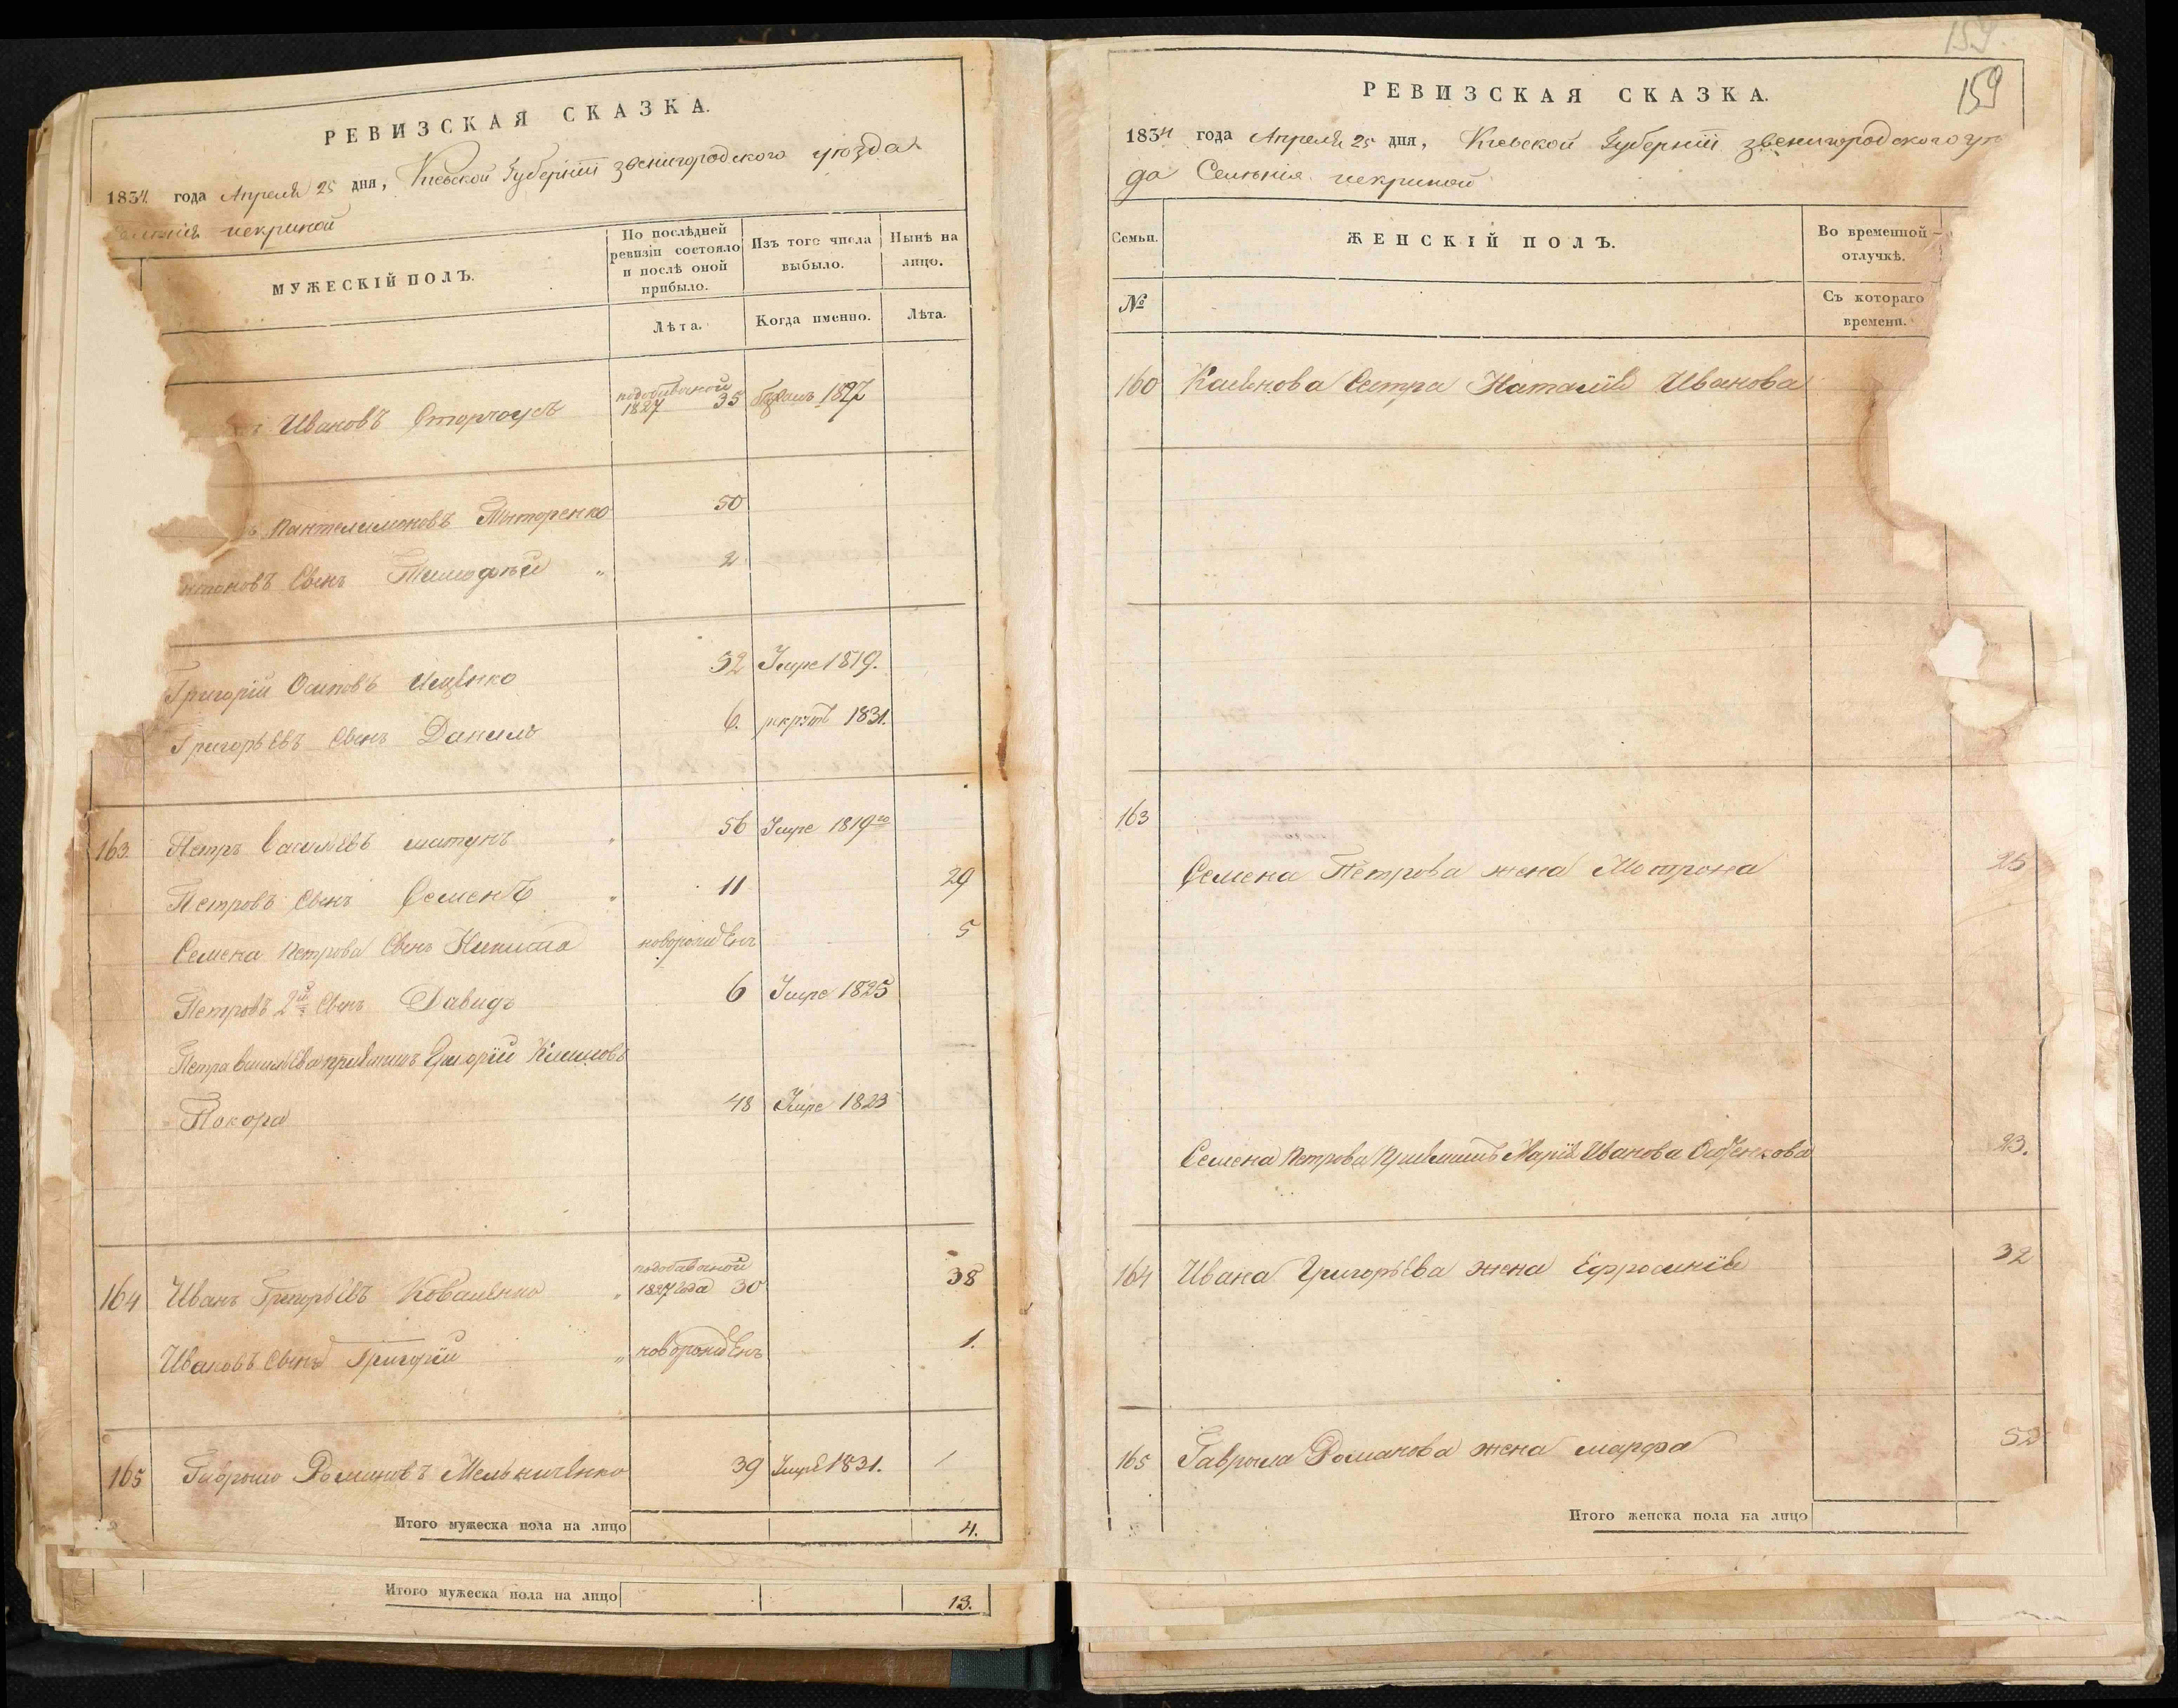 РЕВИЗСКАЯ СКАЗКА.
1834 года Апреля 25 дня, Киевской Губернiи звенигородского уезда
некриной
МУЖЕСКІЙ ПОЛЪ.
По послѣдней ревизіи состояло и послѣ оной прибыло.
Изъ того числа выбыло.
Нынѣ на лицо.
Лѣта.
Когда именно.
Лѣта.
Ивановъ Сторчоусъ 1827 35 1827
Пантелимоновъ 50
Сынъ Тимофѣй " 2
Григорій Осиповъ Ищенко 52 Умре 1819.
Григорьевъ Сынъ Данило 6. рекрутъ 1831.
163. Петръ Васильевъ матунъ 56 Умре 1819го
Петровъ Сынъ Семенъ 11 29
Семена Петрова Сынъ Никита новорожденъ 5
Петровъ 2й Сынъ Давидъ 6 Умре 1825
Петра Васильева Григорій Климовъ
Покора 48 Умре 1823
164 Иванъ Григорьевъ Коваленко " 1827 года 30 38
Ивановъ Сынъ Григорій " новорожденъ 1.
165 Гаврыло Романовъ Мельниченко 39 Умре 1831. /
Итого мужеска пола на лицо 4.
Итого мужеска пола на лицо 13.
159.
159
РЕВИЗСКАЯ СКАЗКА.
1834 года Апреля 25 дня, Киевской Губерніи звенигородского уѣ
да Селенія некриной
Семьи.
ЖЕНСКІЙ ПОЛЪ.
Во временной отлучкѣ.
№
Съ котораго времени.
160 Сестра Наталія Иванова
163
Семена Петрова жена Мотрона 25
Семена Петрова Марія Иванова 23.
164 Ивана Григорьева жена Ефросинія 32
165 Гаврыла Романова жена марфа 52
Итого женска пола на лицо